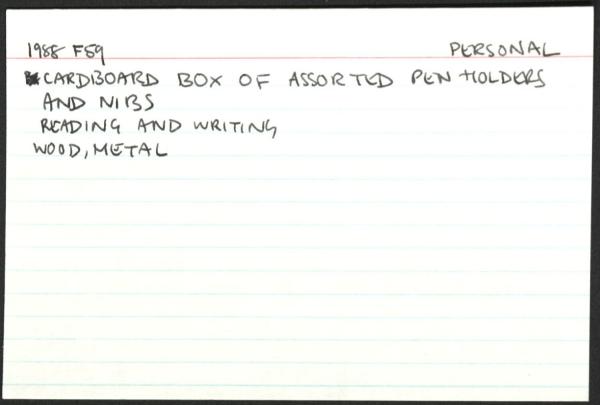 1988 F89 PERSONAL
CARDBOARD BOX OF ASSORTED PEN HOLDERS
AND NIBS
READING AND WRITING
WOOD, METAL